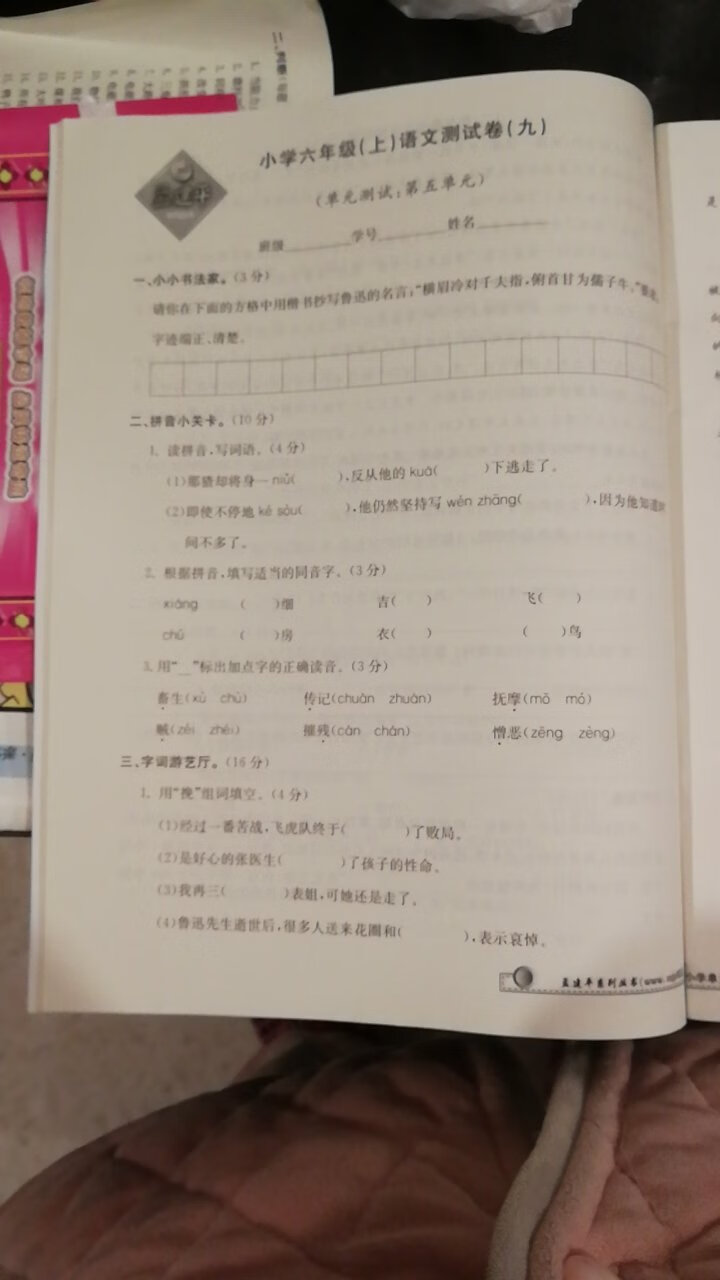 小学六年级(上)语文测试卷(九)
(单元测试:第五单元)
班级________学号________姓名________
一、小小书法家。(3分)
请你在下面的方格中用楷书抄写鲁迅的名言:“横眉冷对千夫指,俯首甘为孺子牛。”要求:
字迹端正、清楚。
二、拼音小关卡。(10分)
1. 读拼音,写词语。(4分)
(1)那猹却将身一niǔ(  ),反从他的kuà(  )下逃走了。
(2)即使不停地ké sòu(  ),他仍然坚持写wén zhāng(  ),因为他知道时
间不多了。
2. 根据拼音,填写适当的同音字。(3分)
xiáng (  )细 吉(  ) 飞(  )
chú (  )房 衣(  ) (  )鸟
3. 用“__”标出加点字的正确读音。(3分)
畜生(xù chù) 传记(chuán zhuàn) 抚摩(mō mó)
贼(zéi zhéi) 摧残(cán chán) 憎恶(zēng zèng)
三、字词游艺厅。(16分)
1. 用“挽”组词填空。(4分)
(1)经过一番苦战,飞虎队终于(  )了败局。
(2)是好心的张医生(  )了孩子的性命。
(3)我再三(  )表姐,可她还是走了。
(4)鲁迅先生逝世后,很多人送来花圈和(  ),表示哀悼。
孟建平系列丛书(www.
小学单